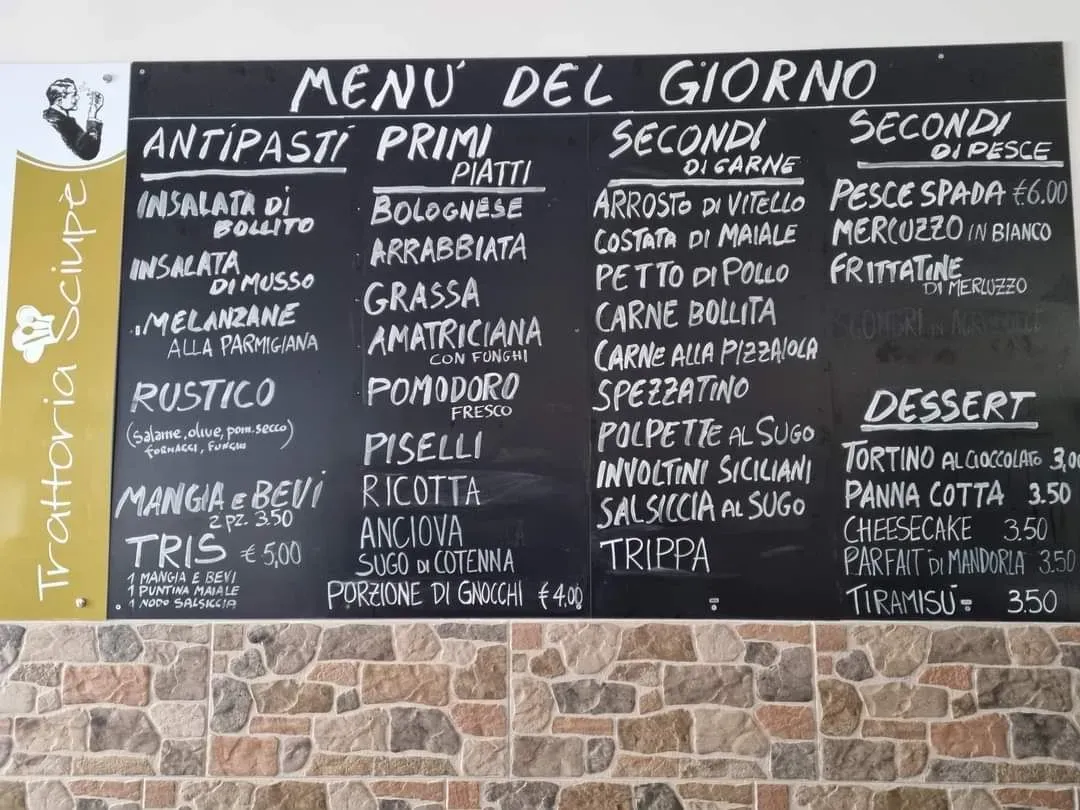 Trattoria Sciupè
MENÙ DEL GIORNO
ANTIPASTI
INSALATA DI
BOLLITO
INSALATA
DI MUSSO
MELANZANE
ALLA PARMIGIANA
RUSTICO
(Salame, olive, pom. secco)
FORMAGGI, FUNGHI
MANGIA E BEVI
2 PZ. 3.50
TRIS € 5,00
1 MANGIA E BEVI
1 PUNTINA MAIALE
1 NODO SALSICCIA
PRIMI
PIATTI
BOLOGNESE
ARRABBIATA
GRASSA
AMATRICIANA
CON FUNGHI
POMODORO
FRESCO
PISELLI
RICOTTA
ANCIOVA
SUGO DI COTENNA
PORZIONE DI GNOCCHI € 4.00
SECONDI
DI CARNE
ARROSTO DI VITELLO
COSTATA DI MAIALE
PETTO DI POLLO
CARNE BOLLITA
CARNE ALLA PIZZAIOLA
SPEZZATINO
POLPETTE AL SUGO
INVOLTINI SICILIANI
SALSICCIA AL SUGO
TRIPPA
SECONDI
DI PESCE
PESCE SPADA €6.00
MERLUZZO IN BIANCO
FRITTATINE
DI MERLUZZO
DESSERT
TORTINO AL CIOCCOLATO 3,00
PANNA COTTA 3.50
CHEESECAKE 3.50
PARFAIT DI MANDORLA 3.50
TIRAMISÙ 3.50